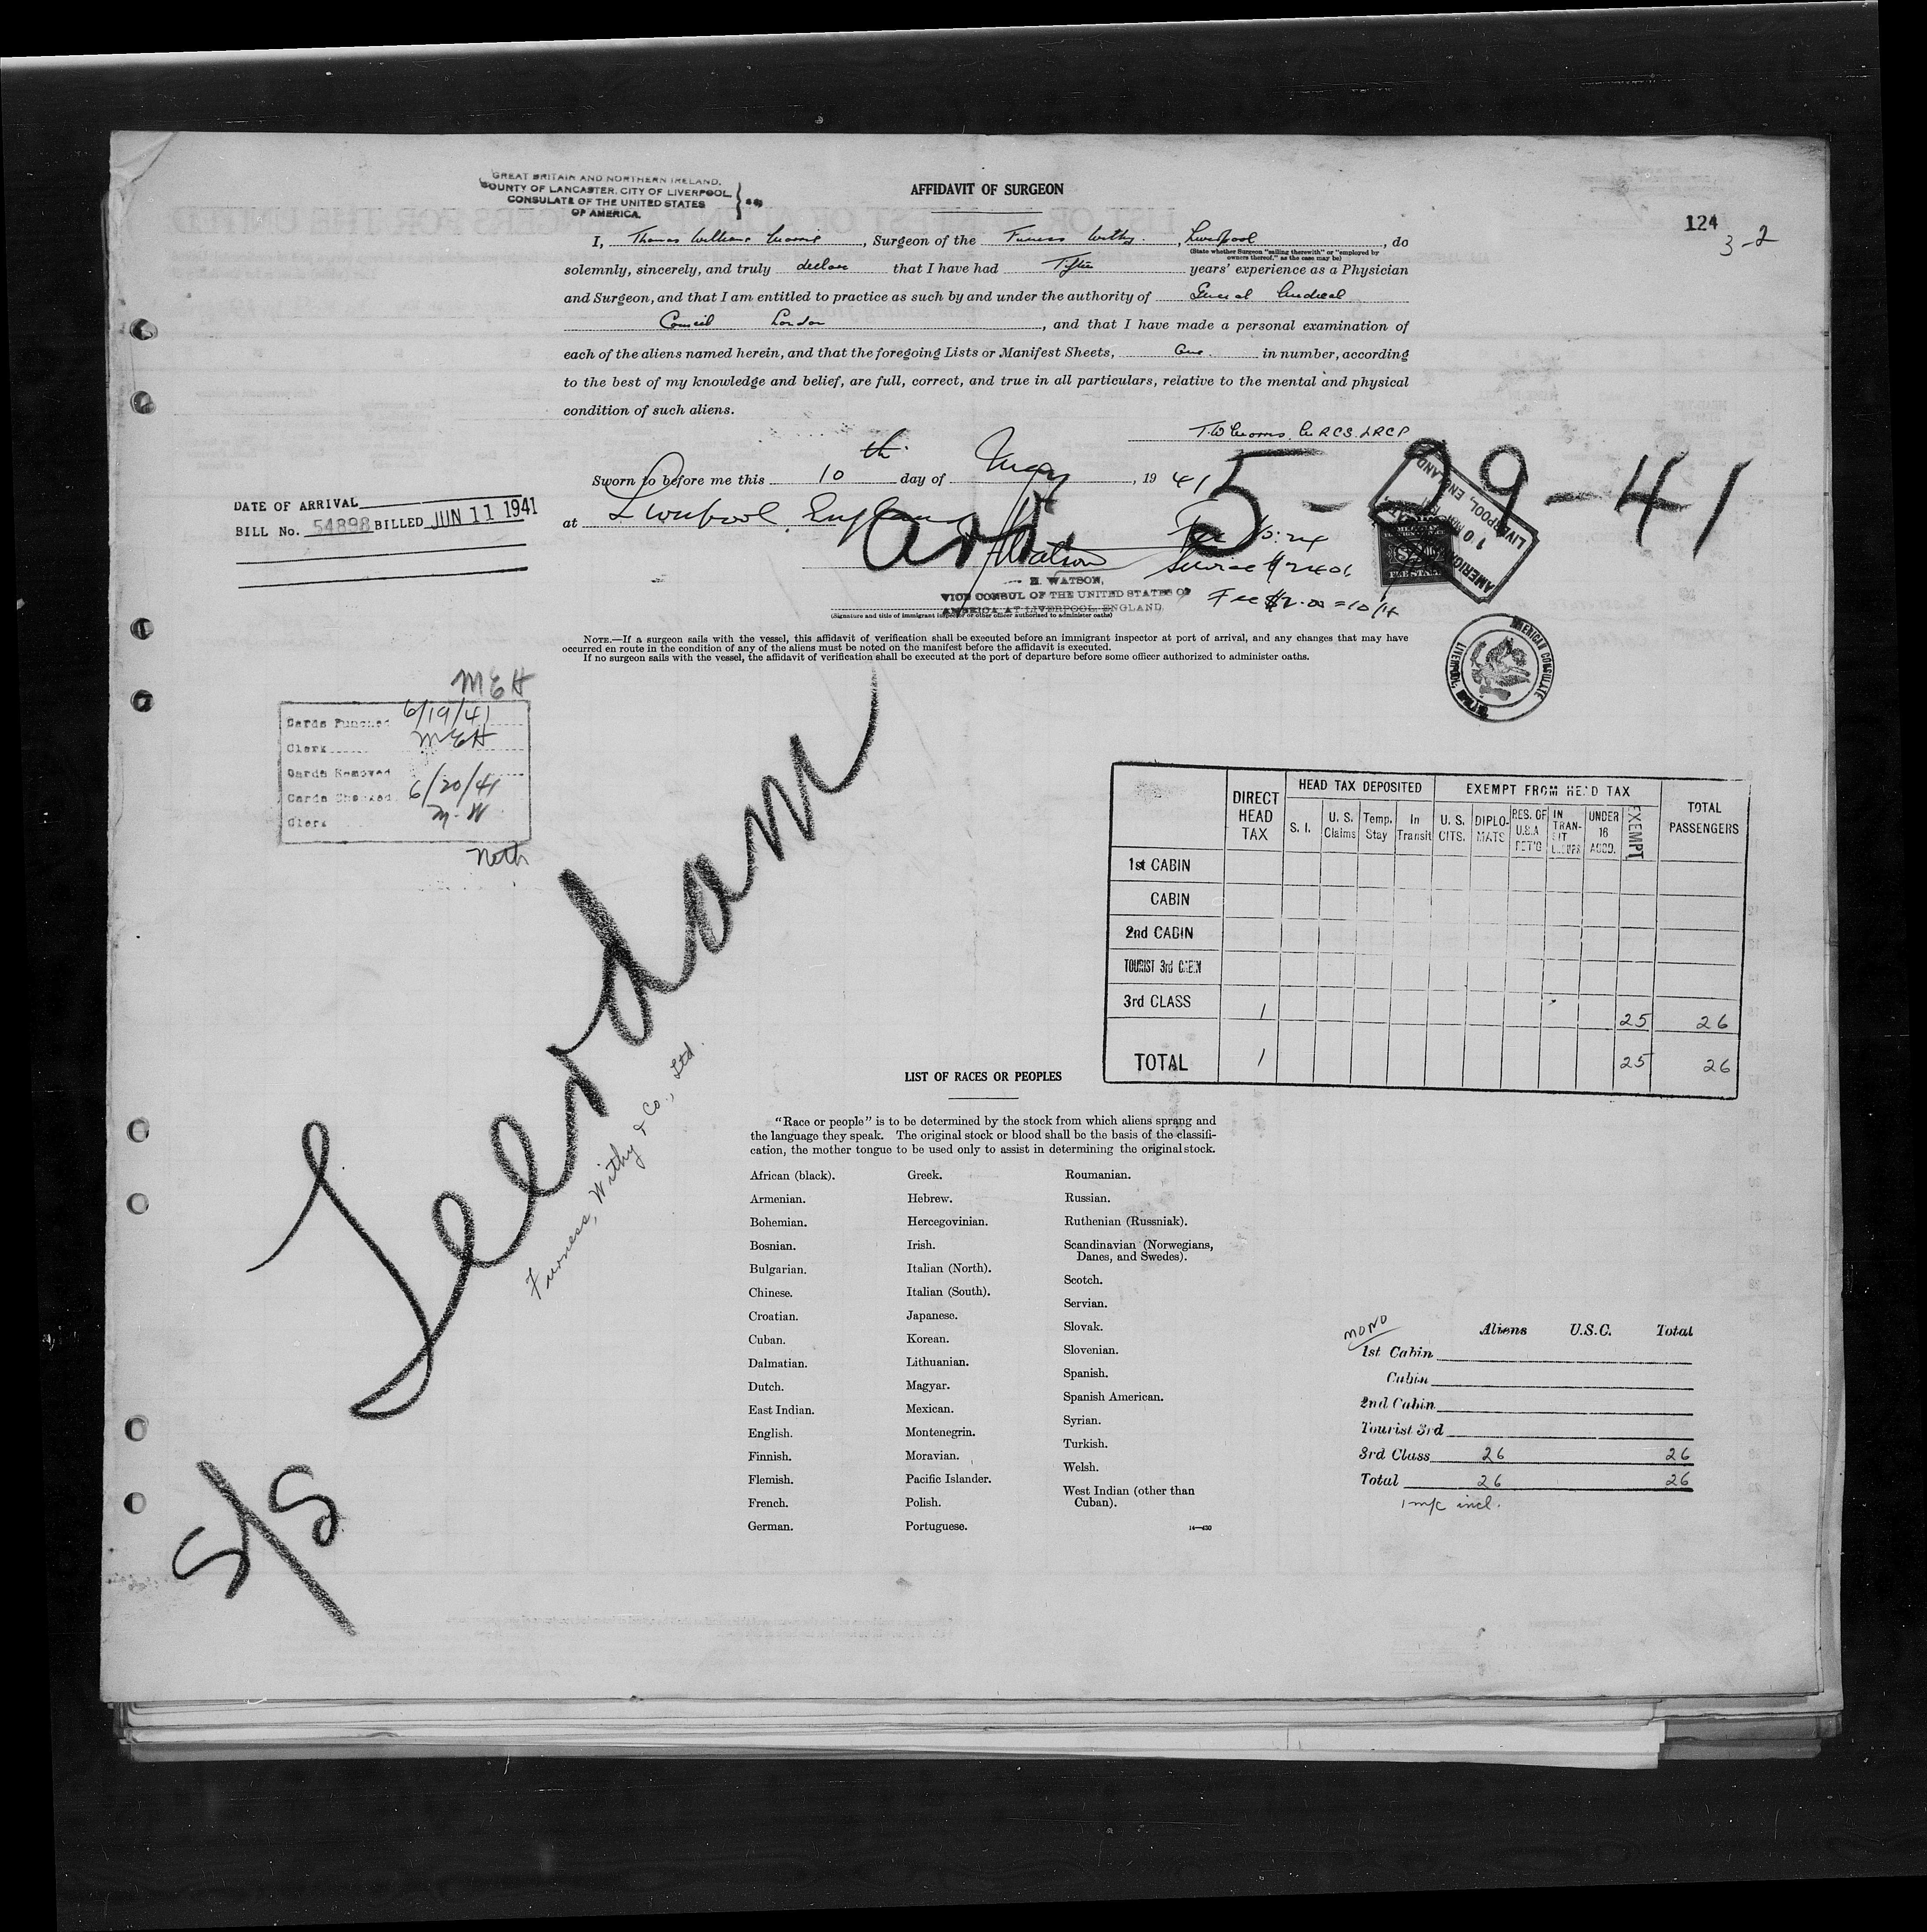 GREAT BRITAIN AND NORTHERN IRELAND,
COUNTY OF LANCASTER. CITY OF LIVERPOOL
CONSULATE OF THE UNITED STATES
OF AMERICA.
AFFIDAVIT OF SURGEON
124
3-2
I, Thomas William Morris, Surgeon of the Furness Withy, Liverpool, do
(State whether Surgeon "sailing therewith" or "employed by
owners thereof," as the case may be)
solemnly, sincerely, and truly declare that I have had years' experience as a Physician
and Surgeon, and that I am entitled to practice as such by and under the authority of General Medical
Council London, and that I have made a personal examination of
each of the aliens named herein, and that the foregoing Lists or Manifest Sheets, One. in number, according
to the best of my knowledge and belief, are full, correct, and true in all particulars, relative to the mental and physical
condition of such aliens.
T.W Morris. M.R.C.S. L.R.C.P
Sworn to before me this 10th day of May, 1941
at Liverpool, England
arr 5-29-41
DATE OF ARRIVAL
BILL No. 54898 BILLED JUN 11 1941
HWatson
H. WATSON,
VICE CONSUL OF THE UNITED STATES OF
AMERICA AT LIVERPOOL, ENGLAND.
(Signature and title of immigrant inspector or other officer authorized to administer oaths)
Service
Fee $2.00 =
AMERICAN
10 MAY
LIVERPOOL, ENGLAND
FEE STAMP
AMERICAN CONSULATE
LIVERPOOL
NOTE.—If a surgeon sails with the vessel, this affidavit of verification shall be executed before an immigrant inspector at port of arrival, and any changes that may have
occurred en route in the condition of any of the aliens must be noted on the manifest before the affidavit is executed.
If no surgeon sails with the vessel, the affidavit of verification shall be executed at the port of departure before some officer authorized to administer oaths.
MEH
Cards Punched 6/19/41
Clerk MEH
Cards Removed
Cards Checked 6/20/41
Clerk M.W
Neth
S/S Leerdam
Furness, Withy & Co., Ltd.
DIRECT HEAD TAX
HEAD TAX DEPOSITED
EXEMPT FROM HEAD TAX
TOTAL PASSENGERS
S. I.
U. S. Claims
Temp. Stay
In Transit
U. S. CITS.
DIPLO-MATS
RES. OF U.S.A RET'G
IN TRAN-SIT
UNDER 16 ACCD.
EXEMPT
1st CABIN
CABIN
2nd CABIN
TOURIST 3rd CABIN
3rd CLASS 1 25 26
TOTAL 1 25 26
LIST OF RACES OR PEOPLES
"Race or people" is to be determined by the stock from which aliens sprang and
the language they speak. The original stock or blood shall be the basis of the classifi-
cation, the mother tongue to be used only to assist in determining the original stock.
African (black).
Armenian.
Bohemian.
Bosnian.
Bulgarian.
Chinese.
Croatian.
Cuban.
Dalmatian.
Dutch.
East Indian.
English.
Finnish.
Flemish.
French.
German.
Greek.
Hebrew.
Hercegovinian.
Irish.
Italian (North).
Italian (South).
Japanese.
Korean.
Lithuanian.
Magyar.
Mexican.
Montenegrin.
Moravian.
Pacific Islander.
Polish.
Portuguese.
Roumanian.
Russian.
Ruthenian (Russniak).
Scandinavian (Norwegians,
Danes, and Swedes).
Scotch.
Servian.
Slovak.
Slovenian.
Spanish.
Spanish American.
Syrian.
Turkish.
Welsh.
West Indian (other than
Cuban).
14—430
mono
Aliens U.S.C. Total
1st Cabin
Cabin
2nd Cabin
Tourist 3rd
3rd Class 26 26
Total 26 26
1 m/c incl.